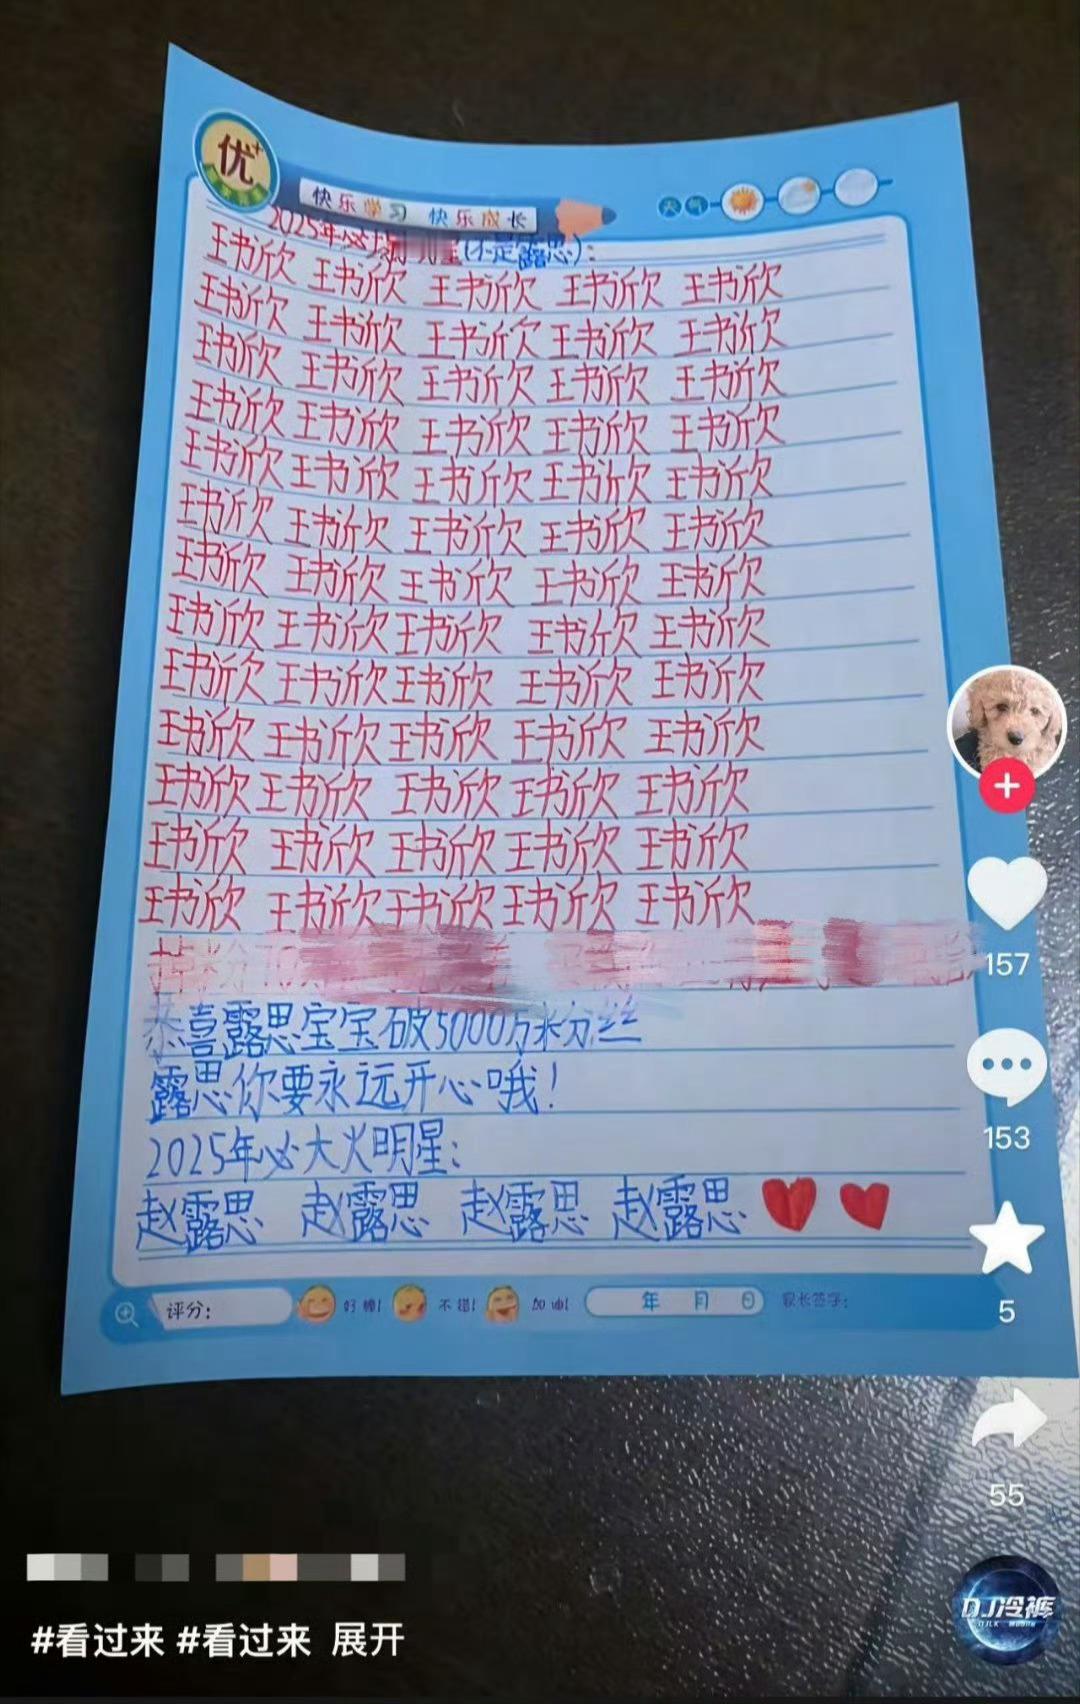 优+
快乐学习 快乐成长
天气
2025年必
(不是露思):
王书欣 王书欣 王书欣 王书欣 王书欣
王书欣 王书欣 王书欣 王书欣 王书欣
王书欣 王书欣 王书欣 王书欣 王书欣
王书欣 王书欣 王书欣 王书欣 王书欣
王书欣 王书欣 王书欣 王书欣 王书欣
王书欣 王书欣 王书欣 王书欣 王书欣
王书欣 王书欣 王书欣 王书欣 王书欣
王书欣 王书欣 王书欣 王书欣 王书欣
王书欣 王书欣 王书欣 王书欣 王书欣
王书欣 王书欣 王书欣 王书欣 王书欣
王书欣 王书欣 王书欣 王书欣 王书欣
王书欣 王书欣 王书欣 王书欣 王书欣
王书欣 王书欣 王书欣 王书欣 王书欣
恭喜露思宝宝破5000万粉丝
露思你要永远开心哦!
2025年必大火明星:
赵露思 赵露思 赵露思 赵露思
评分: 好棒! 不错! 加油! 年 月 日 家长签字:
157
153
5
55
DJ冷裤
#看过来 #看过来 展开